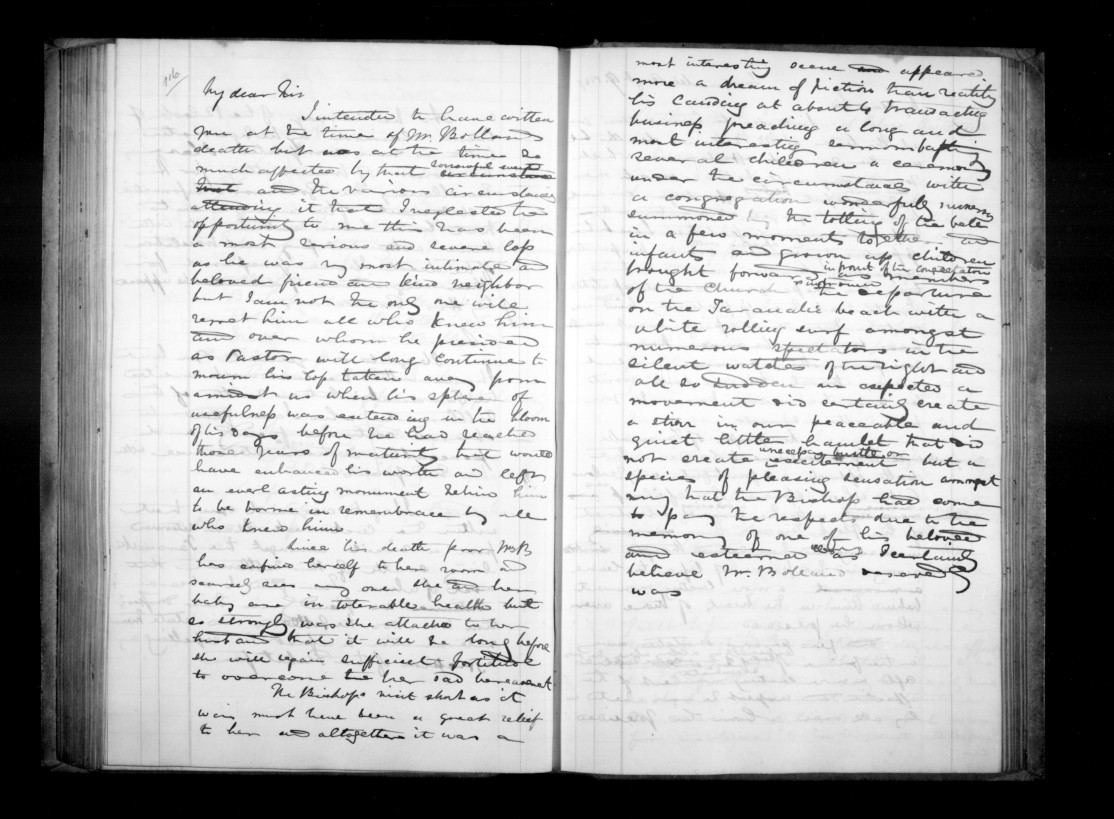 116
My dear Sir
I intended to have written
you at the time of Mr Bollands
death but was at the time so
much affected by that sorrowful event circumstance
that and the various circumstances
attending it that I neglected the
opportunity to me this has been
a most serious and severe loss
as he was my most intimate and
beloved friend and kind neighbor
but I am not the only one will
regret him all who knew him
and over whom he presided
as Pastor will long continue to
mourn his loss taken away from
amidst us when his sphere of
usefulness was extending in the bloom
of his days before he had reached
those years of maturity that would
have enhanced his worth and left
an everlasting monument behind him
to be borne in remembrace by all
who knew him
Since his death poor Mrs B
has confined herself to her room and
scarcely sees any one she and her
baby are in tolerable health but
so strongly was she attached to her
husband that it will be long before
she will regain sufficient fortitude
to overcome the her sad bereavement
The Bishops visit short as it
was must have been a great relief
to her and altogether it was a
most interesting scene and appeared
more a dream of fiction than reality
his landing at about 6 transacting
business preaching a long and
most interesting sermon baptizing
several children a ceremony
under the circumstances with
a congregation wonderfully numerous
summoned by the tolling of the bell
in a few moments together and
infants and grown up children
brought forward in front of the congregation as members
of the Church the departure
on the Taranaki beach with a
white rolling surf amongst
numerous spectators in the
silent watches of the night and
all so sudden an unexpected a
movement did certainly create
a stirr in our peaceable and
quiet little hamlet that did
not create unnecessary bustle or excitement but a
species of pleasing sensation amongst
many that the Bishop had come
to pay the respects due to the
memory of one of his beloved
and esteemed and I certainly
believe Mr Bolland deserved
was